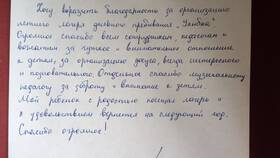 Хочу выразить благодарность за организацию
летнего лагеря дневного пребывания
Огромное спасибо всем сотрудникам, педагогам и
вожатым за чуткое и внимательное отношение
к детям, за организацию досуга, всегда интересного
и познавательного. Отдельное спасибо музыкальному
педагогу за доброту и внимание к детям.
Мой ребенок с радостью посещал лагерь и
с удовольствием вернется на следующий год.
Спасибо огромное!